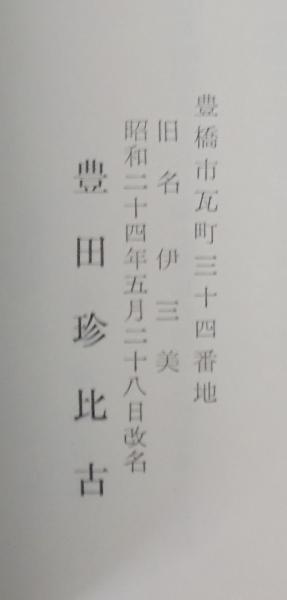 豊橋市瓦町三十四番地
旧名伊三美
昭和二十四年五月二十八日改名
豊田珍比古